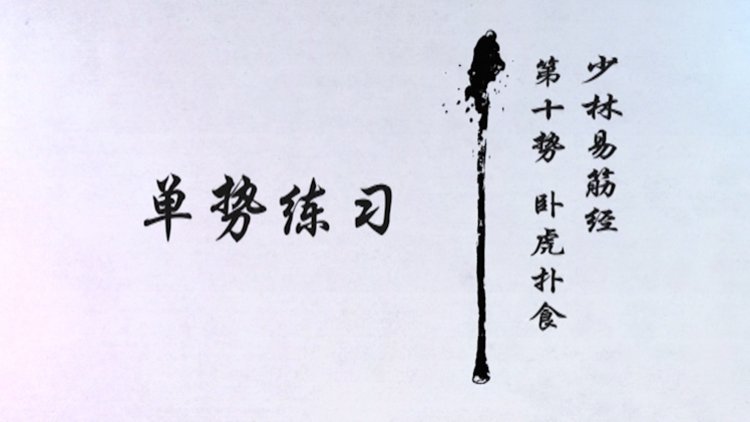 少林易筋经
第十势 卧虎扑食
单势练习